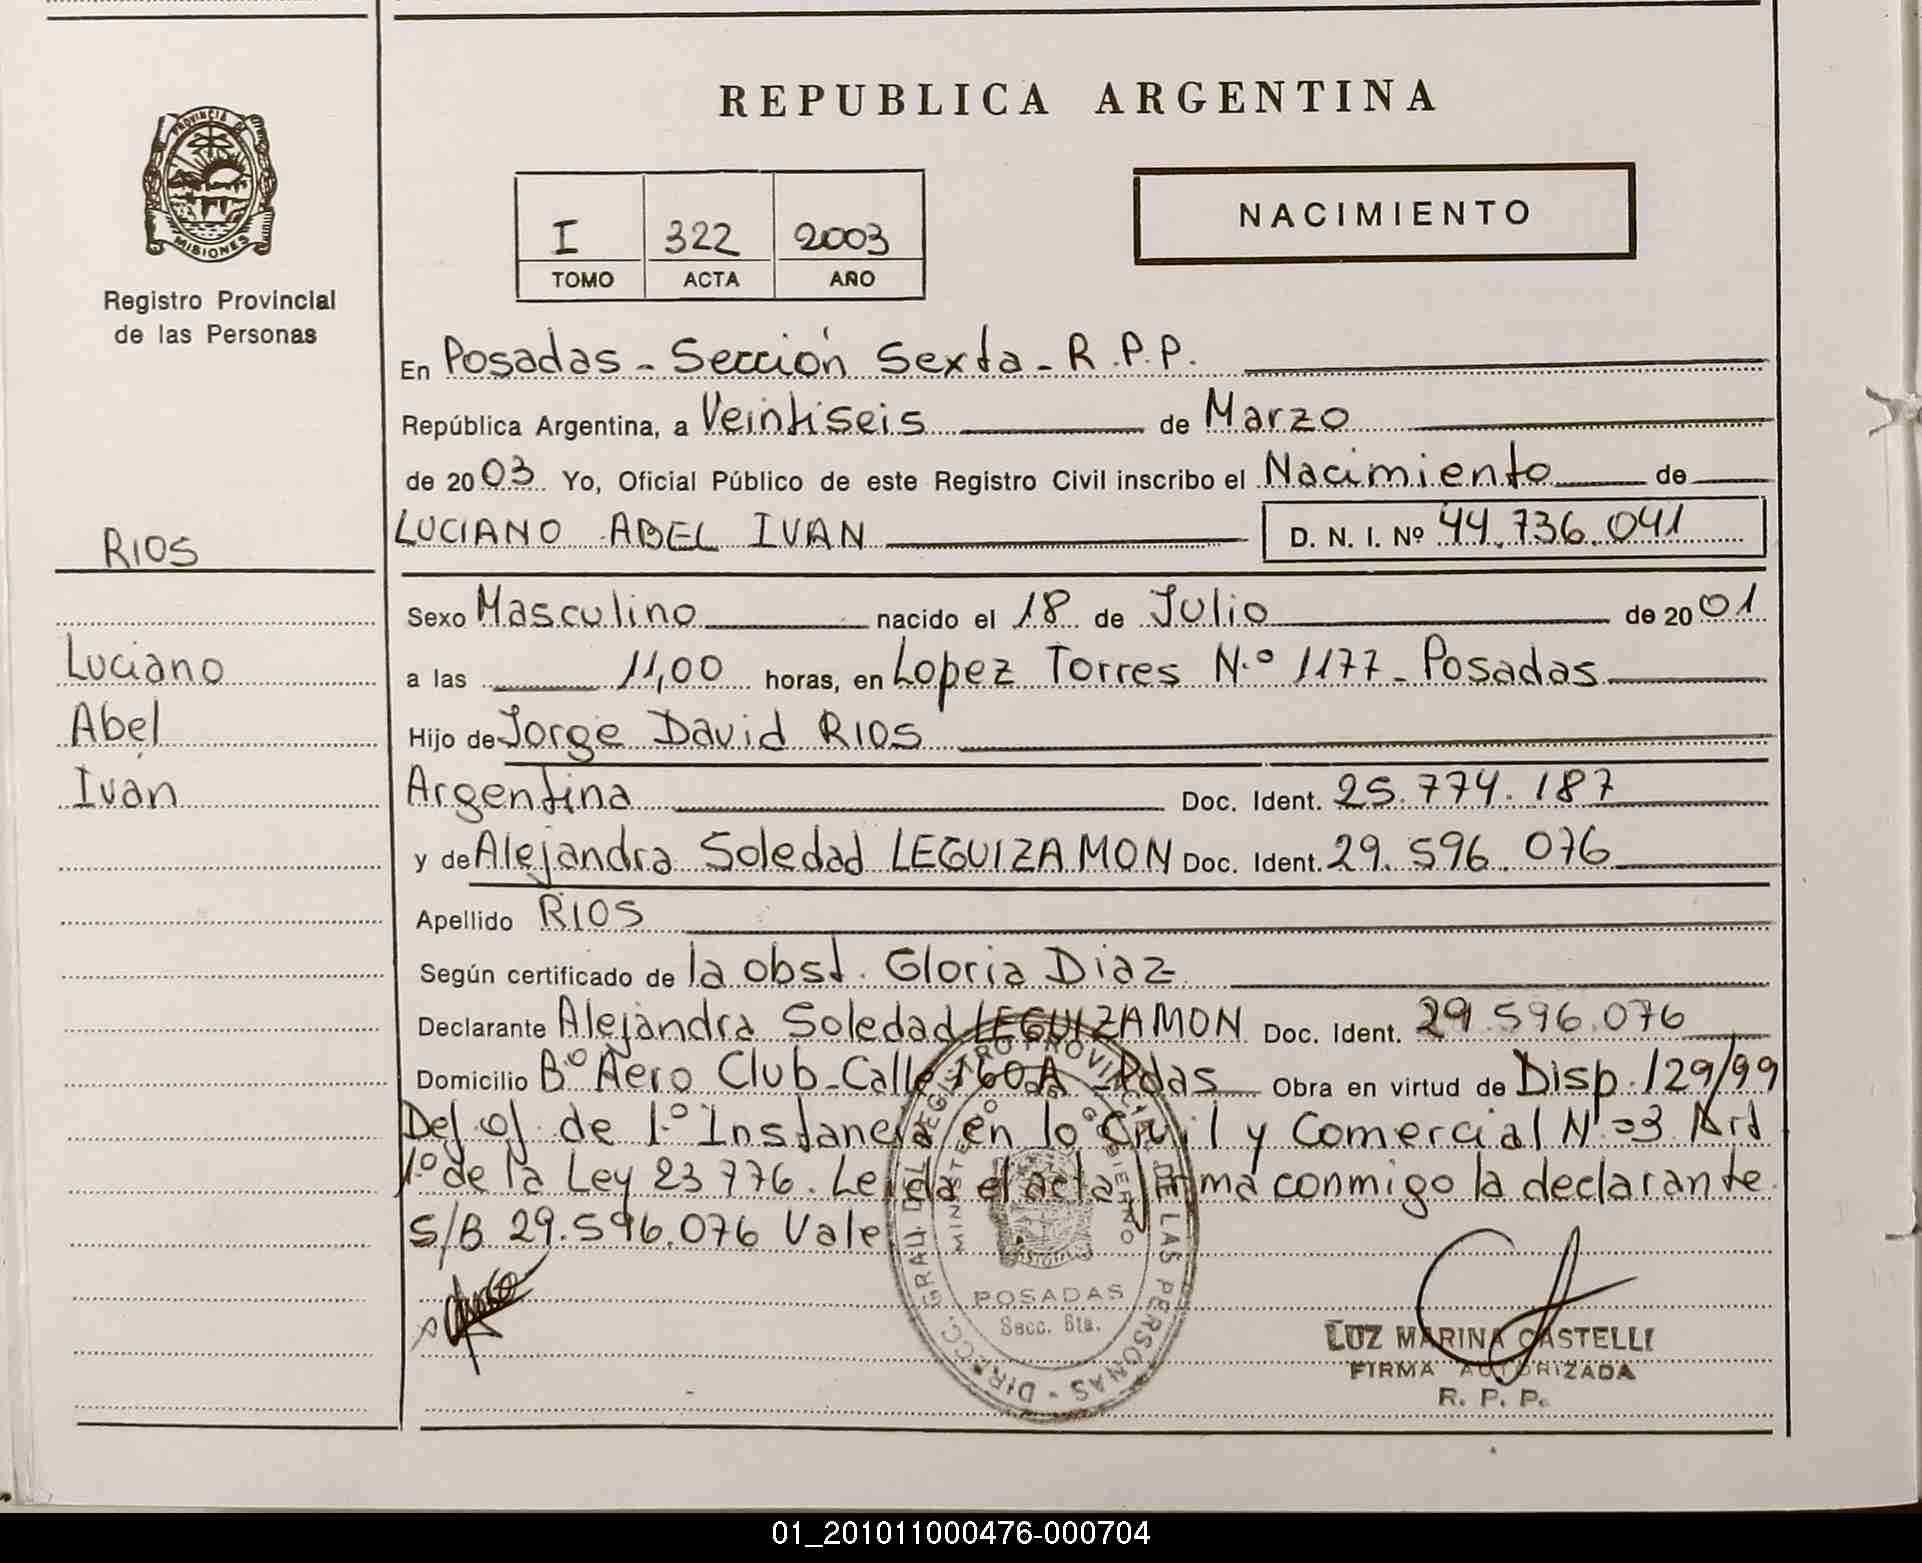 REPUBLICA ARGENTINA
PROVINCIA DE
MISIONES
Registro Provincial
de las Personas
I 322 2003
TOMO ACTA AÑO
NACIMIENTO
En Posadas - Sección Sexta - R.P.P.
República Argentina, a Veintiseis de Marzo
de 2003 Yo, Oficial Público de este Registro Civil inscribo el Nacimiento de
LUCIANO ABEL IVAN D. N. I. Nº 44.736.041
RIOS
Luciano
Abel
Iván
Sexo Masculino nacido el 18 de Julio de 2001
a las 11,00 horas, en Lopez Torres N.º 1177 - Posadas
Hijo de Jorge David RIOS
Argentina Doc. Ident. 25.774.187
y de Alejandra Soledad LEGUIZAMON Doc. Ident. 29.596.076
Apellido RIOS
Según certificado de la obst. Gloria Diaz
Declarante Alejandra Soledad LEGUIZAMON Doc. Ident. 29.596.076
Domicilio Bº Aero Club - Calle 160A - Pdas Obra en virtud de Disp. 129/99
de 1.º Instancia en lo Civil y Comercial Nº 3 Art
1º de la Ley 23776. Leida el acta firma conmigo la declarante
S/B 29.596.076 Vale
DIRECC. GRAL. DEL REGISTRO PROVINCIAL DE LAS PERSONAS
MINISTERIO DE GOBIERNO
MISIONES
POSADAS
Secc. 6ta.
LUZ MARINA CASTELLI
FIRMA AUTORIZADA
R. P. P.
01_201011000476-000704